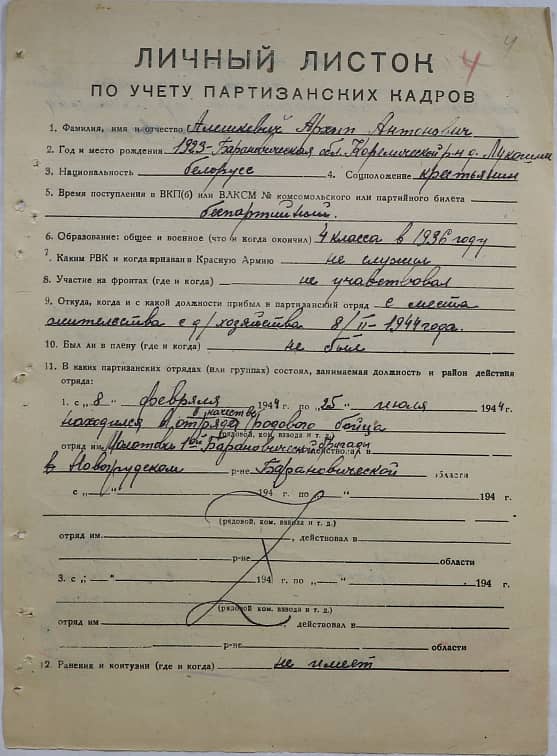 4
4
ЛИЧНЫЙ ЛИСТОК
ПО УЧЕТУ ПАРТИЗАНСКИХ КАДРОВ
1. Фамилия, имя и отчество Алешкевич Архип Антонович
2. Год и место рождения 1923 - Барановическая обл. Кореличский р-н д. Лукашин
3. Национальность белорусс 4. Соцположение крестьянин
5. Время поступления в ВКП(б) или ВЛКСМ № комсомольского или партийного билета
беспартийный.
6. Образование: общее и военное (что и когда окончил) 4 класса в 1936 году
7. Каким РВК и когда призван в Красную Армию не служил
8. Участие на фронтах (где и когда) не учавствовал
9. Откуда, когда и с какой должности прибыл в партизанский отряд с места
жительства с д/хозяйства 8/II-1944 года.
10. Был ли в плену (где и когда) не был
11. В каких партизанских отрядах (или группах) состоял, занимаемая должность и район действия
отряда:
1. с „8" февраля 1944 г. по „25" июля 1944 г.
находился в отряде в качестве рядового бойца
(рядовой, ком. взвода и т. д.)
отряд им. 1-ой Барановической бригады действовал в
в Новогрудском р-не Барановической области
с „ " 194 г. по „ " 194 г.
(рядовой, ком. взвода и т. д.)
отряд им. , действовал в
р-не области
3. с „ " 194 г. по „ " 194 г.
(рядовой ком. взвода и т. д.)
отряд им , действовал в
р-не области
2. Ранения и контузии (где и когда) не имеет